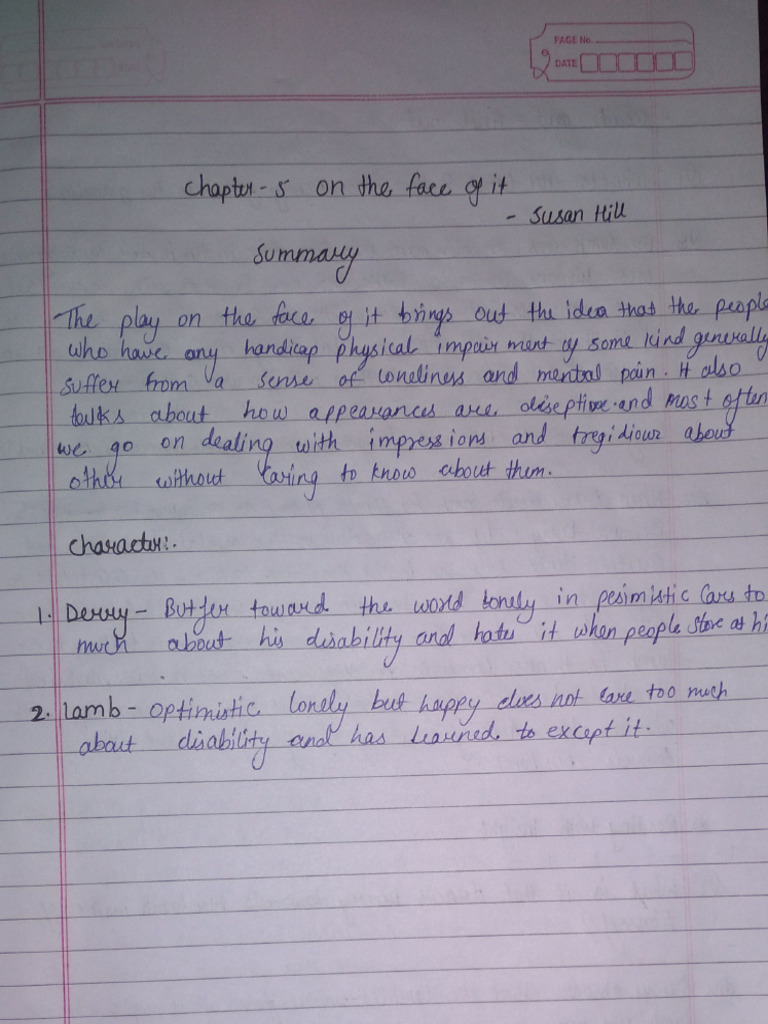 PAGE No.
DATE
Chapter - 5 on the face of it
- Susan Hill
Summary
The play on the face of it brings out the idea that the people
who have any handicap physical impairment of some kind generally
suffer from a sense of loneliness and mental pain. It also
talks about how appearances are diseptive and most often
we go on dealing with impressions and about
other without caring to know about them.
Character:.
1. Derry - toward the world lonely in pesimistic Cars to
much about his disability and hates it when people stare at hi
2. Lamb - optimistic lonely but happy does not care too much
about disability and has learned to except it.